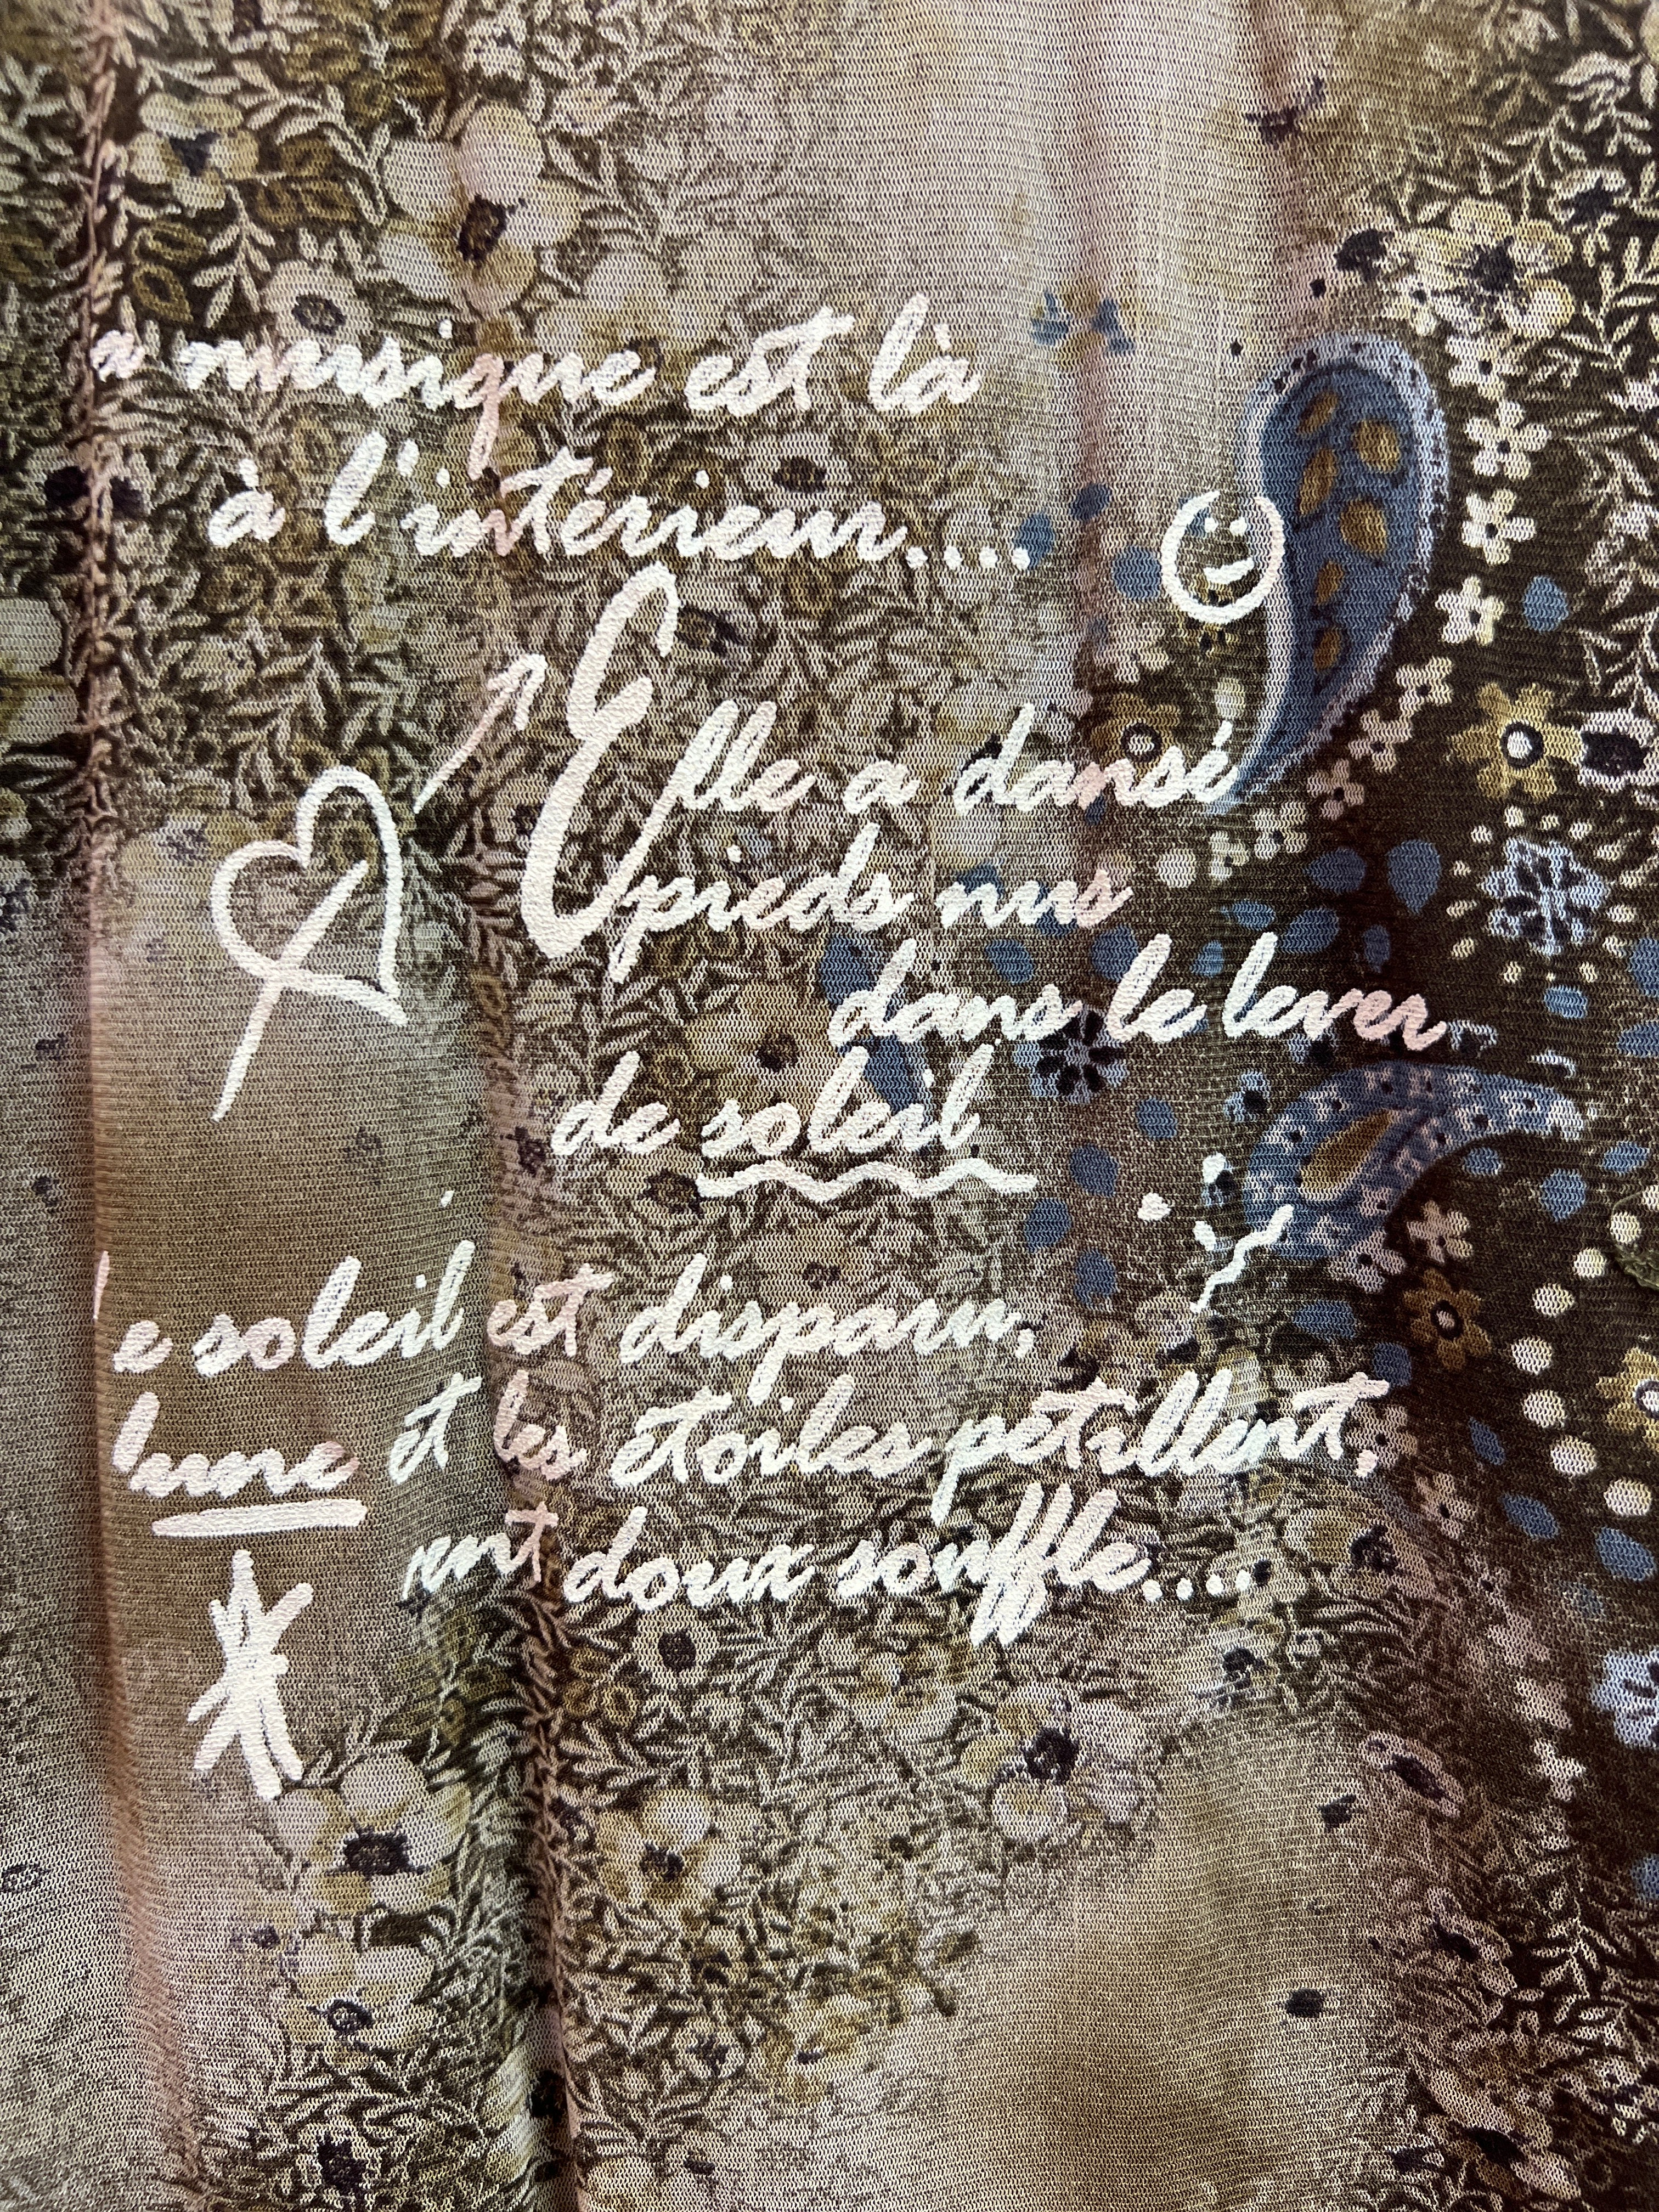 a musique est là
à l'intérieur....
Elle a dansé
pieds nus
dans le lever
de soleil
le soleil est disparu,
lune et les étoiles petillent,
doux souffle....